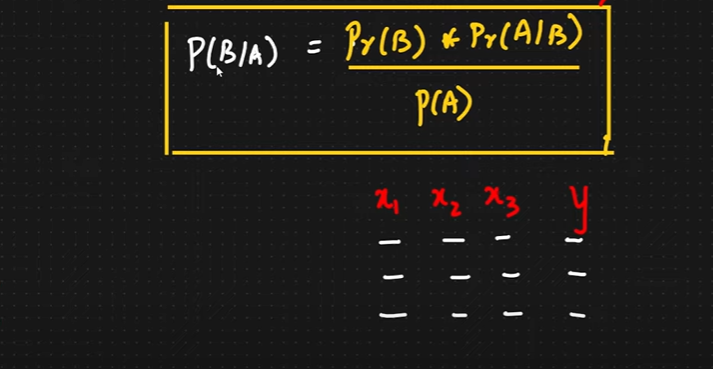 P(B/A) = Pr(B) * Pr(A/B)
P(A)
x₁ x₂ x₃ y